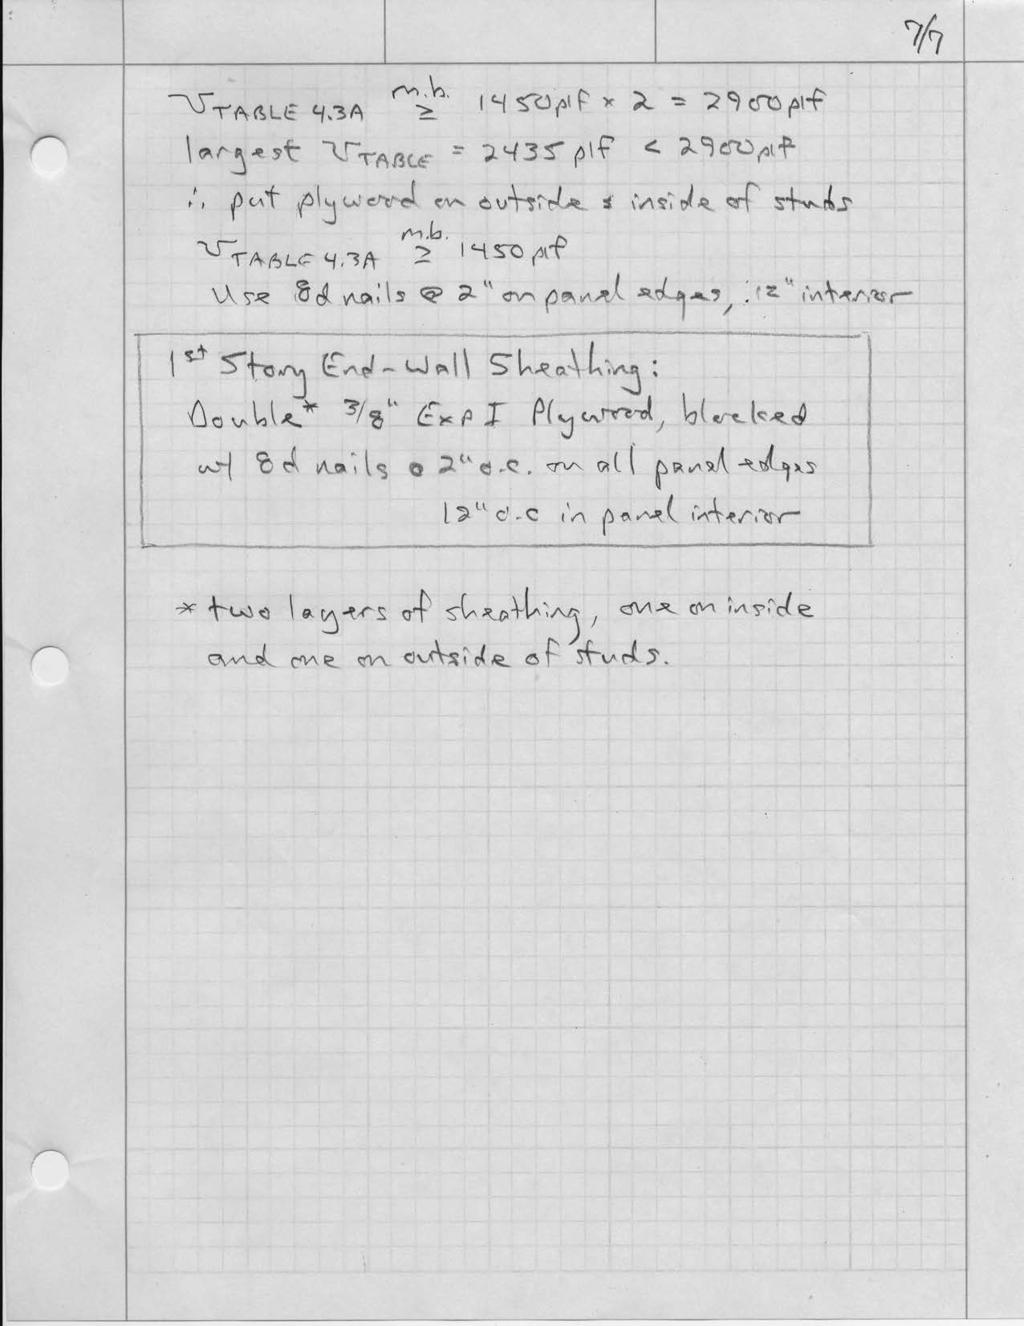 7/7
v TABLE 4.3A m.b. ≥ 1450 plf × 2 = 2900 plf
largest v TABLE = 2435 plf < 2900 plf
∴ put plywood on outside & inside of studs
v TABLE 4.3A m.b. ≥ 1450 plf
Use 8d nails @ 2" on panel edges, 12" interior
1st Story End-Wall Sheathing:
Double* 3/8" Exp I Plywood, blocked
w/ 8d nails @ 2" o.c. on all panel edges
12" o.c in panel interior
* two layers of sheathing, one on inside
and one on outside of studs.